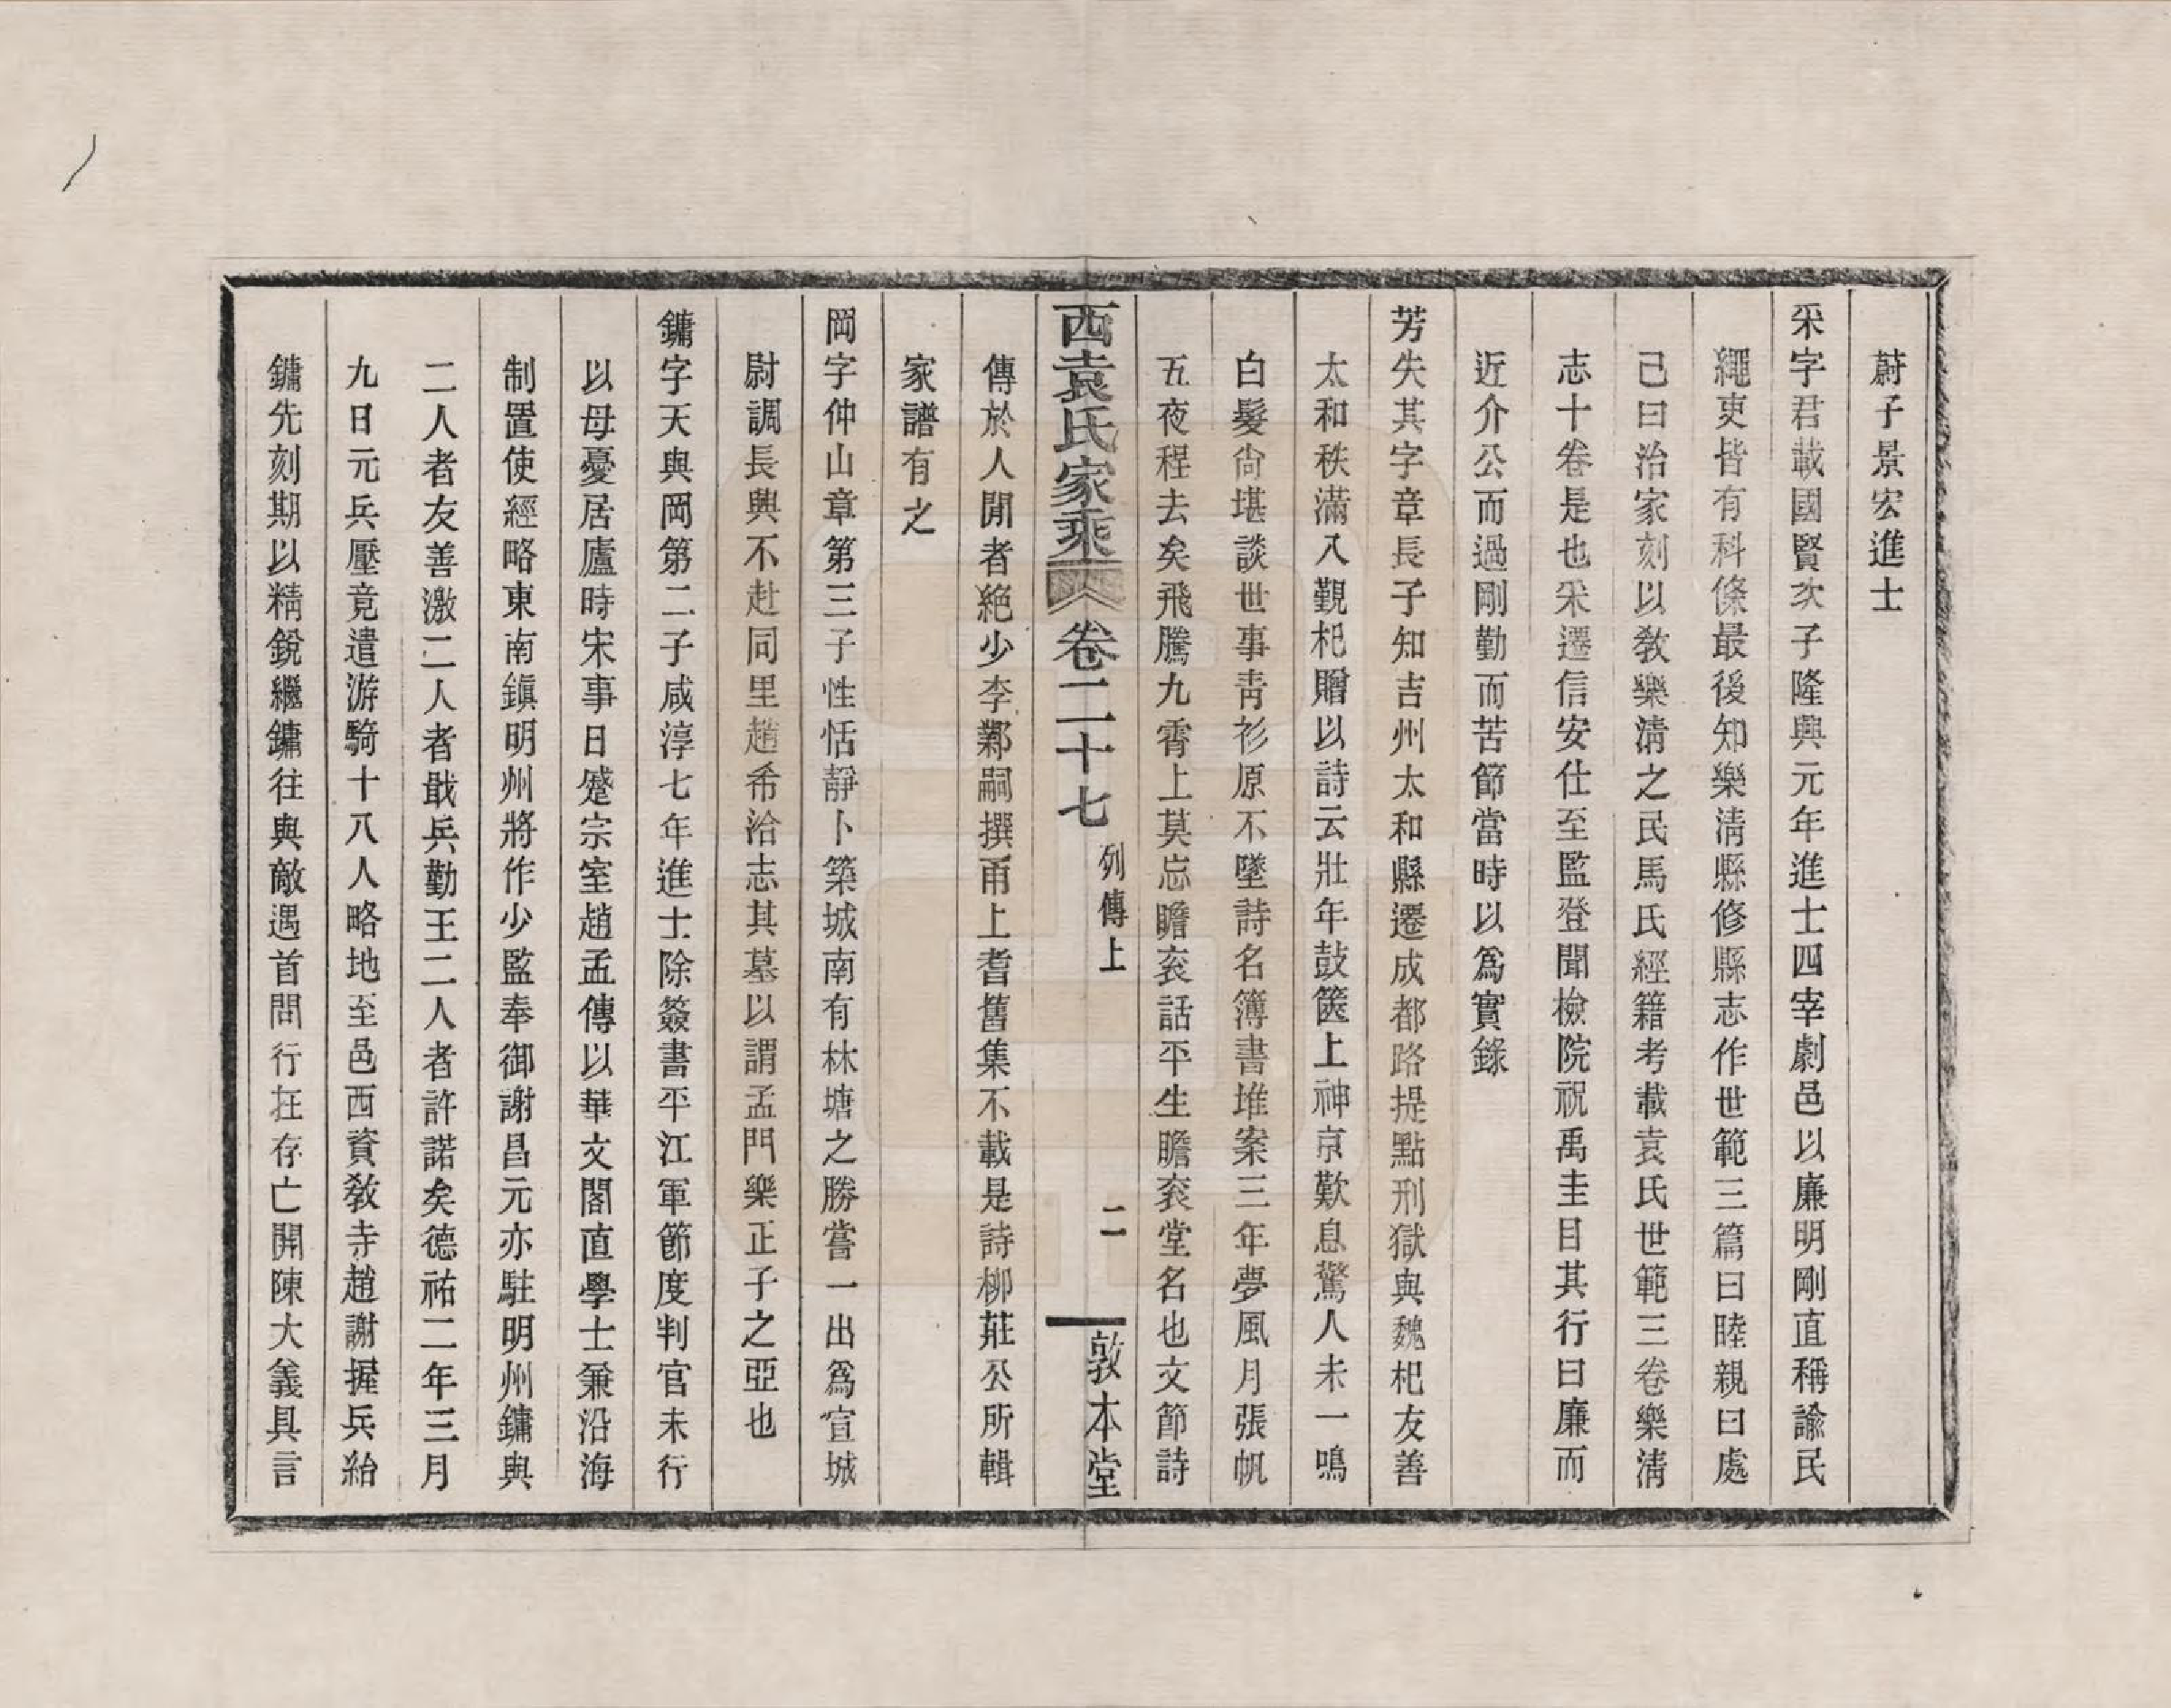 蔚子景宏進士
采字君載國賢次子隆興元年進士四宰劇邑以廉明剛直稱諭民
繩吏皆有科條最後知樂清縣修縣志作世範三篇曰睦親曰處
己曰治家刻以敎樂清之民馬氏經籍考載袁氏世範三卷樂清
志十卷是也采遷信安仕至監登聞檢院祝禹圭目其行曰廉而
近介公而過剛勤而苦節當時以爲實錄
芳失其字章長子知吉州太和縣遷成都路提點刑獄與魏杞友善
太和秩滿入覲杞贈以詩云壯年鼓篋上神京歎息驚人未一鳴
白髮尙堪談世事靑衫原不墜詩名簿書堆案三年夢風月張帆
五夜程去矣飛騰九霄上莫忘瞻袞話平生瞻袞堂名也文節詩
西袁氏家乘 卷二十七 列傳上 二 敦本堂
傳於人閒者絕少李鄴嗣撰甬上耆舊集不載是詩柳莊公所輯
家譜有之
岡字仲山章第三子性恬靜卜築城南有林塘之勝嘗一出爲宣城
尉調長興不赴同里趙希洽志其墓以謂孟門樂正子之亞也
鏞字天與岡第二子咸淳七年進士除簽書平江軍節度判官未行
以母憂居廬時宋事日蹙宗室趙孟傳以華文閣直學士兼沿海
制置使經略東南鎭明州將作少監奉御謝昌元亦駐明州鏞與
二人者友善激二人者戢兵勤王二人者許諾矣德祐二年三月
九日元兵壓竟遣游騎十八人略地至邑西資敎寺趙謝握兵紿
鏞先刻期以精銳繼鏞往與敵遇首問行在存亡開陳大義具言